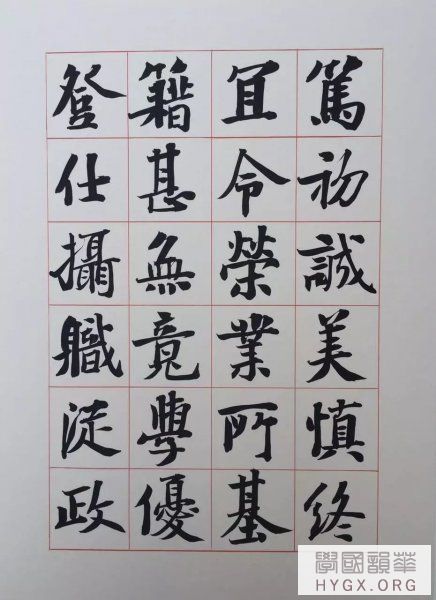 篤初誠美慎終
宜令榮業所基
籍甚無竟學優
登仕攝職從政
華韻國學
HYGX.ORG